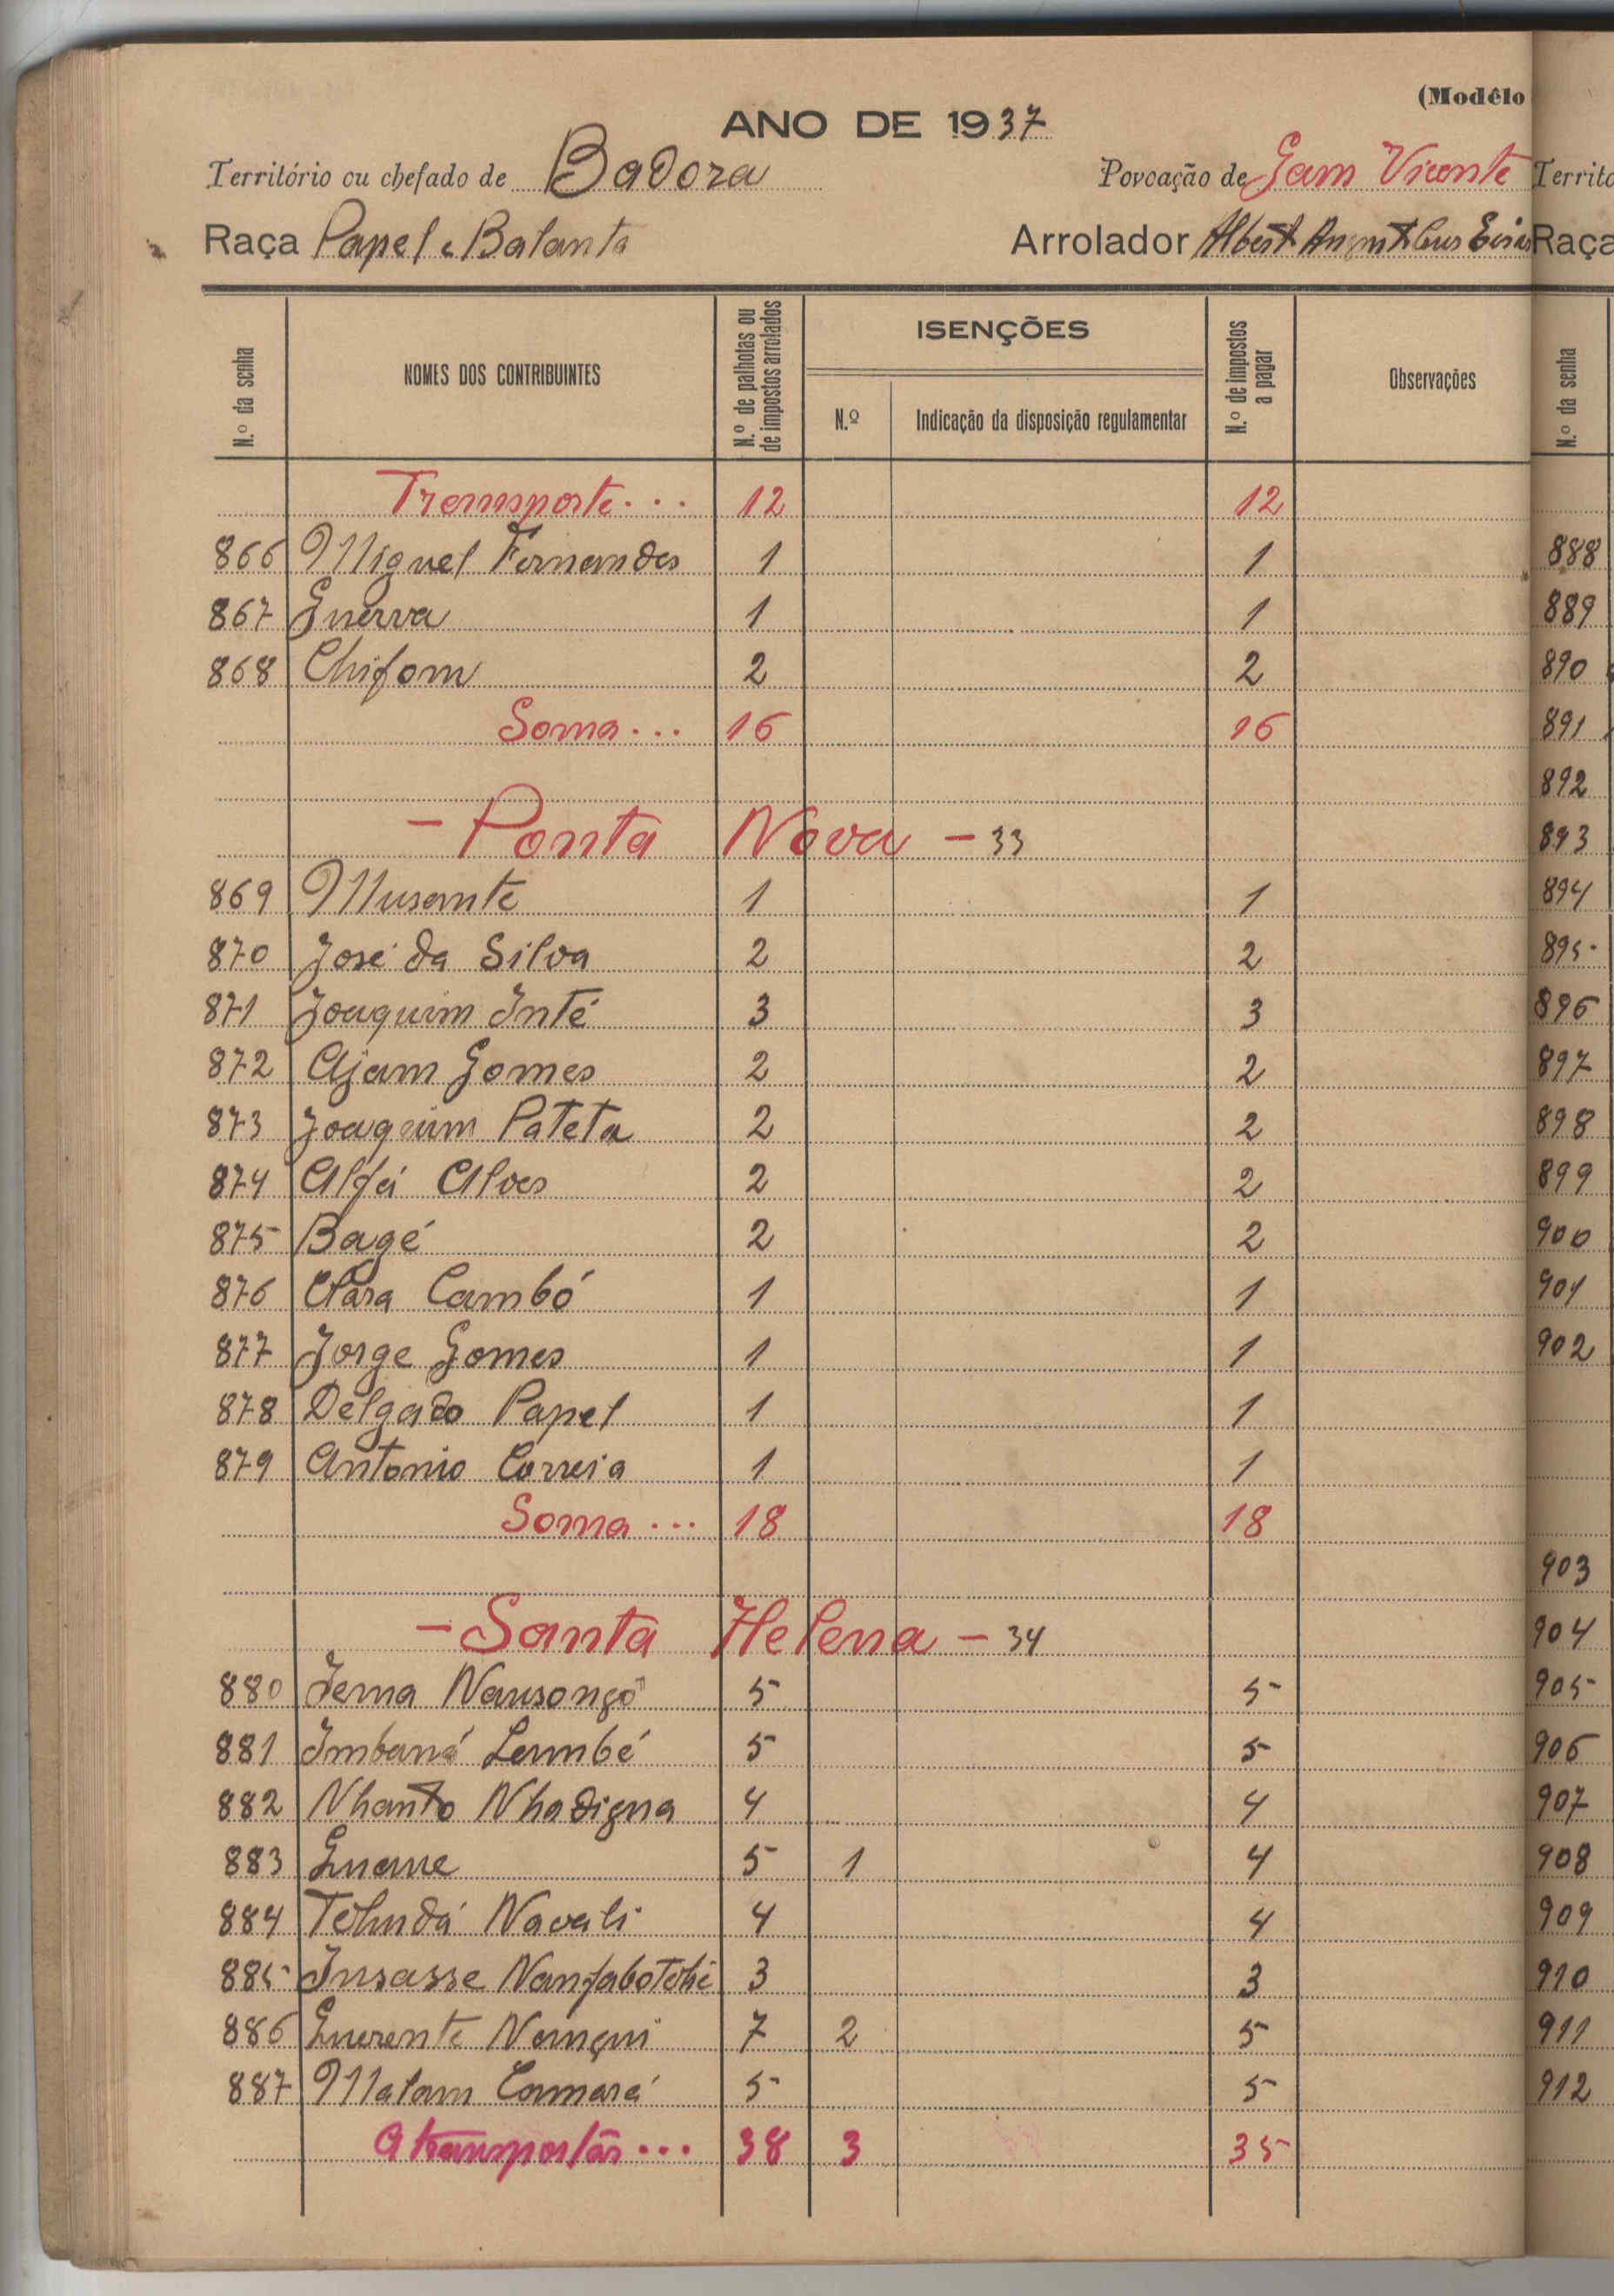 (Modêlo
ANO DE 1937
Território ou chefado de Badora Povoação de Sam Vicente
Raça Papel e Balanta Arrolador Alberto Augusto
N.º da senha NOMES DOS CONTRIBUINTES N.º de palhotas ou de impostos arrolados ISENÇÕES N.º Indicação da disposição regulamentar N.º de impostos a pagar Observações
Transporte... 12 12
866 Miguel Fernandes 1 1
867 Guerva 1 1
868 Chifom 2 2
Soma... 16 16
- Ponta Nova - 33
869 Musante 1 1
870 José da Silva 2 2
871 Joaquim Inté 3 3
872 Ajam Gomes 2 2
873 Joaquim Pateta 2 2
874 Alfá Alves 2 2
875 Bagé 2 2
876 Clara Cambó 1 1
877 Jorge Gomes 1 1
878 Delgado Papel 1 1
879 Antonio Correia 1 1
Soma... 18 18
- Santa Helena - 34
880 Iema 5 5
881 Imbaná Lambé 5 5
882 Nhanto Nhadigna 4 4
883 5 1 4
884 Tchudá Navali 4 4
885 Insasse Nanfabotché 3 3
886 Guerente 7 2 5
887 Malam Camará 5 5
A transportar... 38 3 35
Territó
Raça
N.º da senha
888
889
890
891
892
893
894
895
896
897
898
899
900
901
902
903
904
905
906
907
908
909
910
911
912